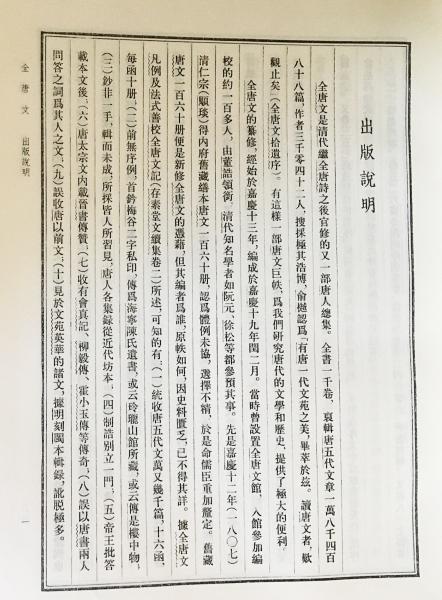 出版說明
全唐文是清代繼全唐詩之後官修的又一部唐人總集。全書一千卷，裒輯唐五代文章一萬八千四百
八十八篇，作者三千零四十二人，搜採極其浩博，俞樾認爲「有唐一代文苑之美，畢萃於茲。讀唐文者，歎
觀止矣」（全唐文拾遺序）。有這樣一部唐文巨帙，爲我們研究唐代的文學和歷史，提供了極大的便利。
全唐文的纂修，經始於嘉慶十三年，編成於嘉慶十九年閏二月。當時曾設置全唐文館，入館參加編
校的約一百多人，由董誥領銜，清代知名學者如阮元、徐松等都參預其事。先是嘉慶十二年（一八〇七）
清仁宗（顒琰）得內府舊藏繕本唐文一百六十册，認爲體例未協，選擇不精，於是命儒臣重加釐定。舊藏
唐文一百六十册便是新修全唐文的憑藉，但其編者爲誰，原帙如何，因史料匱乏，已不得其詳。據全唐文
凡例及法式善校全唐文記（存素堂文續集卷二）所述，可知的有：（一）統收唐五代文萬又幾千篇，十六函，
每函十册，（二）前無序例，首鈐梅谷二字私印，傳爲海寧陳氏遺書，或云玲瓏山館所藏，或云傳是樓中物，
（三）鈔非一手，輯而未成，所採皆人所習見，唐人各集錄從近代坊本，（四）制誥別立一門，（五）帝王批答
載本文後，（六）唐太宗文內載晉書傳贊，（七）收有會真記、柳毅傳、霍小玉傳等傳奇，（八）誤以唐書兩人
問答之詞爲其人之文，（九）誤收唐以前文，（十）見於文苑英華的諸文，據明刻閩本輯錄，訛脫極多。
全唐文　出版說明
一